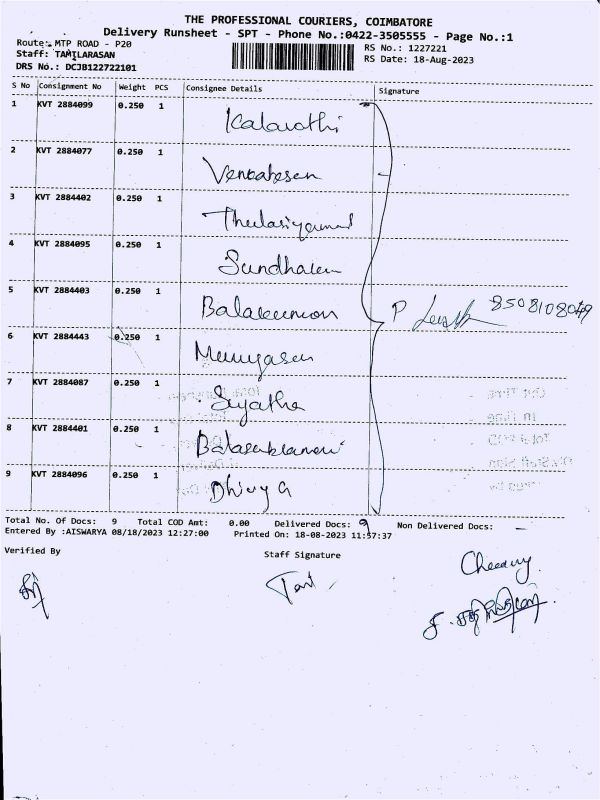 THE PROFESSIONAL COURIERS, COIMBATORE
Delivery Runsheet - SPT - Phone No.:0422-3505555 - Page No.:1
Route: MTP ROAD - P20
RS No.: 1227221
Staff: TAMILARASAN
RS Date: 18-Aug-2023
DRS No.: DCJB122722101
S No Consignment No Weight PCS Consignee Details Signature
1 KVT 2884099 0.250 1 Kalavathi
2 KVT 2884077 0.250 1 Venkatesan
3 KVT 2884402 0.250 1
4 KVT 2884095 0.250 1
5 KVT 2884403 0.250 1 P
6 KVT 2884443 0.250 1
7 KVT 2884087 0.250 1 Sujatha
8 KVT 2884401 0.250 1
9 KVT 2884096 0.250 1 Dhivya
Total No. Of Docs: 9 Total COD Amt: 0.00 Delivered Docs: 9 Non Delivered Docs: -
Entered By :AISWARYA 08/18/2023 12:27:00 Printed On: 18-08-2023 11:57:37
Verified By Staff Signature